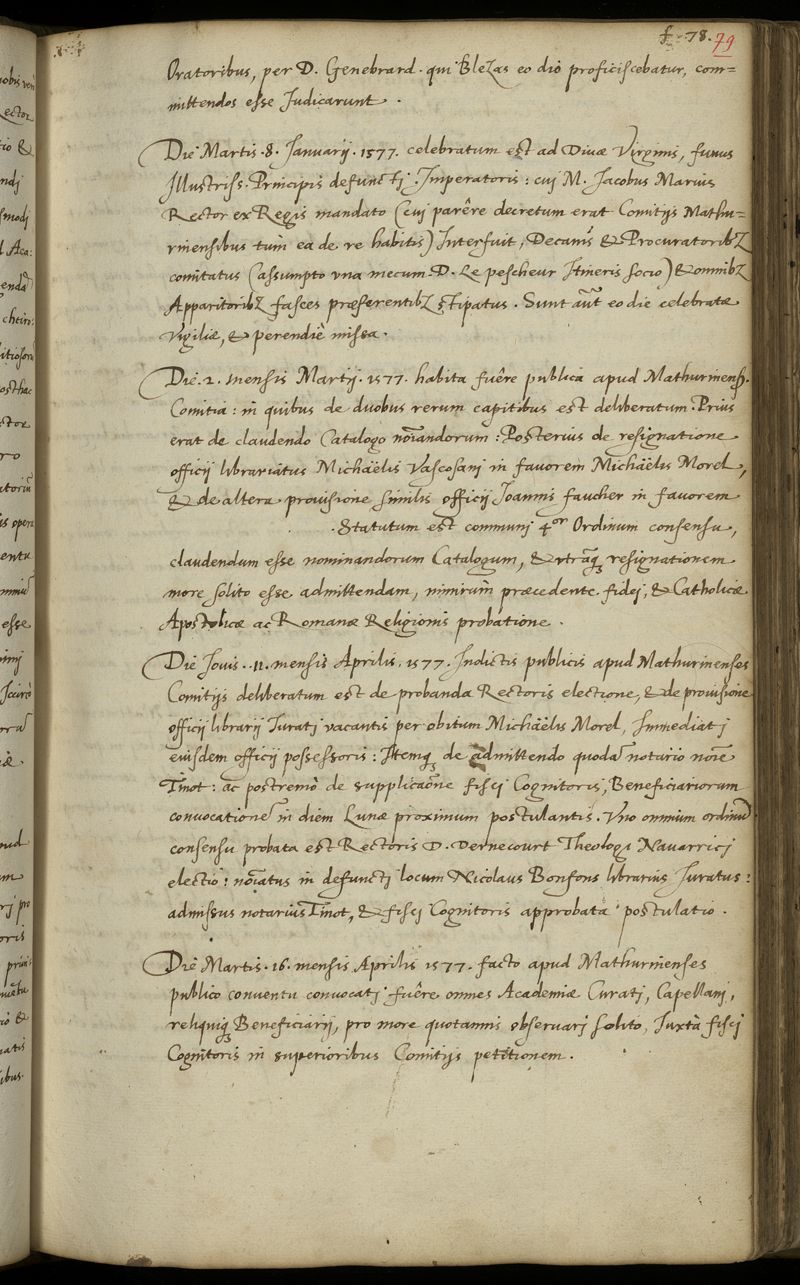 f. 78. 79
Oratoribus, per D. Genebrard. qui Blezas eo diò proficiscebatur, com=
mittendos esse Iudicarunt.
Die Martis .8. Ianuarij .1577. celebratum est ad Diuæ Virginis, funus
Illustriss. Principis defuncti Imperatoris: cui M. Iacobus Marius
Rector ex Regis mandato (cui parêre decretum erat Comitijs Mathu=
rinensibus tum ea de re habitis) Interfuit, Decanis & Procuratoribȝ
comitatus (assumpto vna mecum D. Le pescheur Itineris socio) & omnibȝ
Apparitoribȝ fasces præferentibȝ stipatus. Sunt aut̃ eo die celebratæ
vigiliæ, & perendiè missa.
Die .2. mensis Martij .1577. habita fuêre publica apud Mathurinens̃.
Comitia: in quibus de duobus rerum capitibus est deliberatum. Prius
erat de claudendo Catalogo noiãndorum: Posterius de resignatione
officij librariatus Michäelis Vascosani in fauorem Michäelis Morel,
& de altera prouisione similis officij Ioannis faucher in fauorem
. Statutum est communi 4or Ordinum consensu,
claudendum esse nominandorum Catalogum, & vtrãqȝ resignationem
more solito esse admittendam, nimirùm præcedente fidei, & Catholicæ
Apostolicæ ac Romanæ Religionis probatione.
Die Iouis .11. mensis Aprilis .1577. Indictis publicis apud Mathurinenses
Comitijs deliberatum est de probanda Rectoris electione, & de prouisione
officij librarij Iurati vacantis per obitum Michäelis Morel, Immediati
eiusdem officij possessoris: Itemqȝ de admittendo quodã notario noiẽ
Tinot: ac postremò de supplicaõne fisci Cognitoris, Beneficiariorum
conuocationẽ in diem Lunæ proximum postulantis. Vno omnium ordinũ
consensu probata est Rectoris D. Dernecourt Theologi Nauarrici
electio: noiãtus in defuncti locum Nicolaus Bonfons librarius Iuratus:
admissus notarius Tinot, & fisci Cognitoris approbata postulatio.
Die Martis .16. mensis Aprilis 1577. facto apud Mathurinenses
publico conuentu conuocati fuêre omnes Academiæ Curati, Capellani,
reliquiqȝ Beneficiarij, pro more quotannis obseruari solito, Iuxtà fisci
Cognitoris in superioribus Comitijs petitionem.